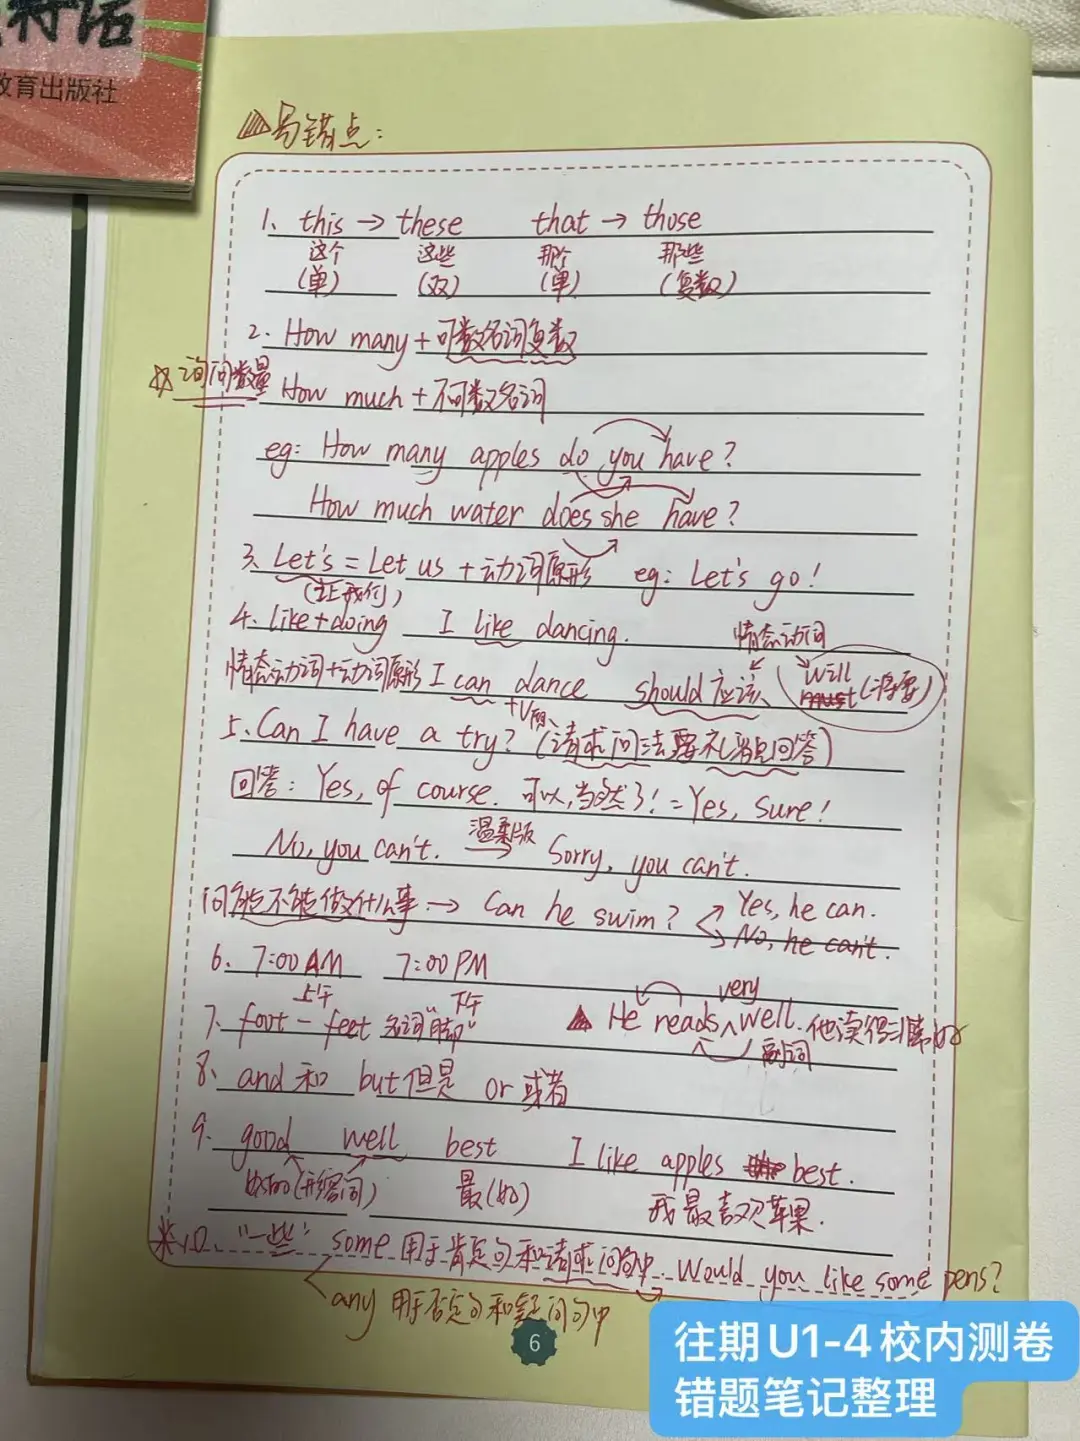 待话
教育出版社
易错点：
1. this → these that → those
这个 这些 那个 那些
(单) (双) (单) (复数)
2. How many + 可数名词复数
☆询问数量
How much + 不可数名词
eg: How many apples do you have?
How much water does she have?
3、Let's = Let us + 动词原形 eg: Let's go!
(让我们)
4、like + doing I like dancing.
情态动词
情态动词+动词原形 I can dance should 应该、will (将要)
+V原、
5、Can I have a try? (请求问法要礼貌回答)
回答：Yes, of course. 可以,当然了! = Yes, sure!
No, you can't. 温柔版 Sorry, you can't.
问能不能做什么事 → Can he swim? Yes, he can.
No, he can't.
6、7:00 AM 7:00 PM
上午 下午
7、foot - feet 名词"脚" ▲ He reads well. 他读得非常好
very
副词
8、and 和 but 但是 or 或者
9、good well best I like apples best.
好的(形容词) 最(好) 我最喜欢苹果.
※10、"一些" some 用于肯定句和请求问句中. Would you like some pens?
any 用于否定句和疑问句中
6
往期U1-4校内测卷
错题笔记整理